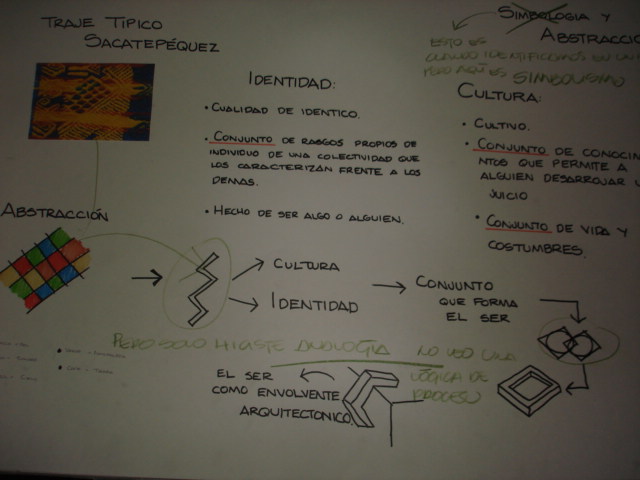 TRAJE TIPICO
SACATEPÉQUEZ
SIMBOLOGIA Y
ABSTRACCIO
ESTO ES
CUANDO IDENTIFICAMOS EN UN
PERO AQUÍ ES SIMBOLISMO
IDENTIDAD:
• CUALIDAD DE IDENTICO.
• CONJUNTO DE RASGOS PROPIOS DE
INDIVIDUO DE UNA COLECTIVIDAD QUE
LOS CARACTERIZAN FRENTE A LOS
DEMAS.
• HECHO DE SER ALGO O ALGUIEN.
CULTURA:
• CULTIVO.
• CONJUNTO DE CONOCIM
NTOS QUE PERMITE A
ALGUIEN DESARROJAR U
JUICIO
• CONJUNTO DE VIDA Y
COSTUMBRES.
ABSTRACCIÓN
CULTURA
IDENTIDAD
CONJUNTO
QUE FORMA
EL SER
PERO SOLO HICISTE ANALOGÍA NO USO UNA
LÓGICA DE
PROCESO
EL SER
COMO ENVOLVENTE
ARQUITECTONICO.